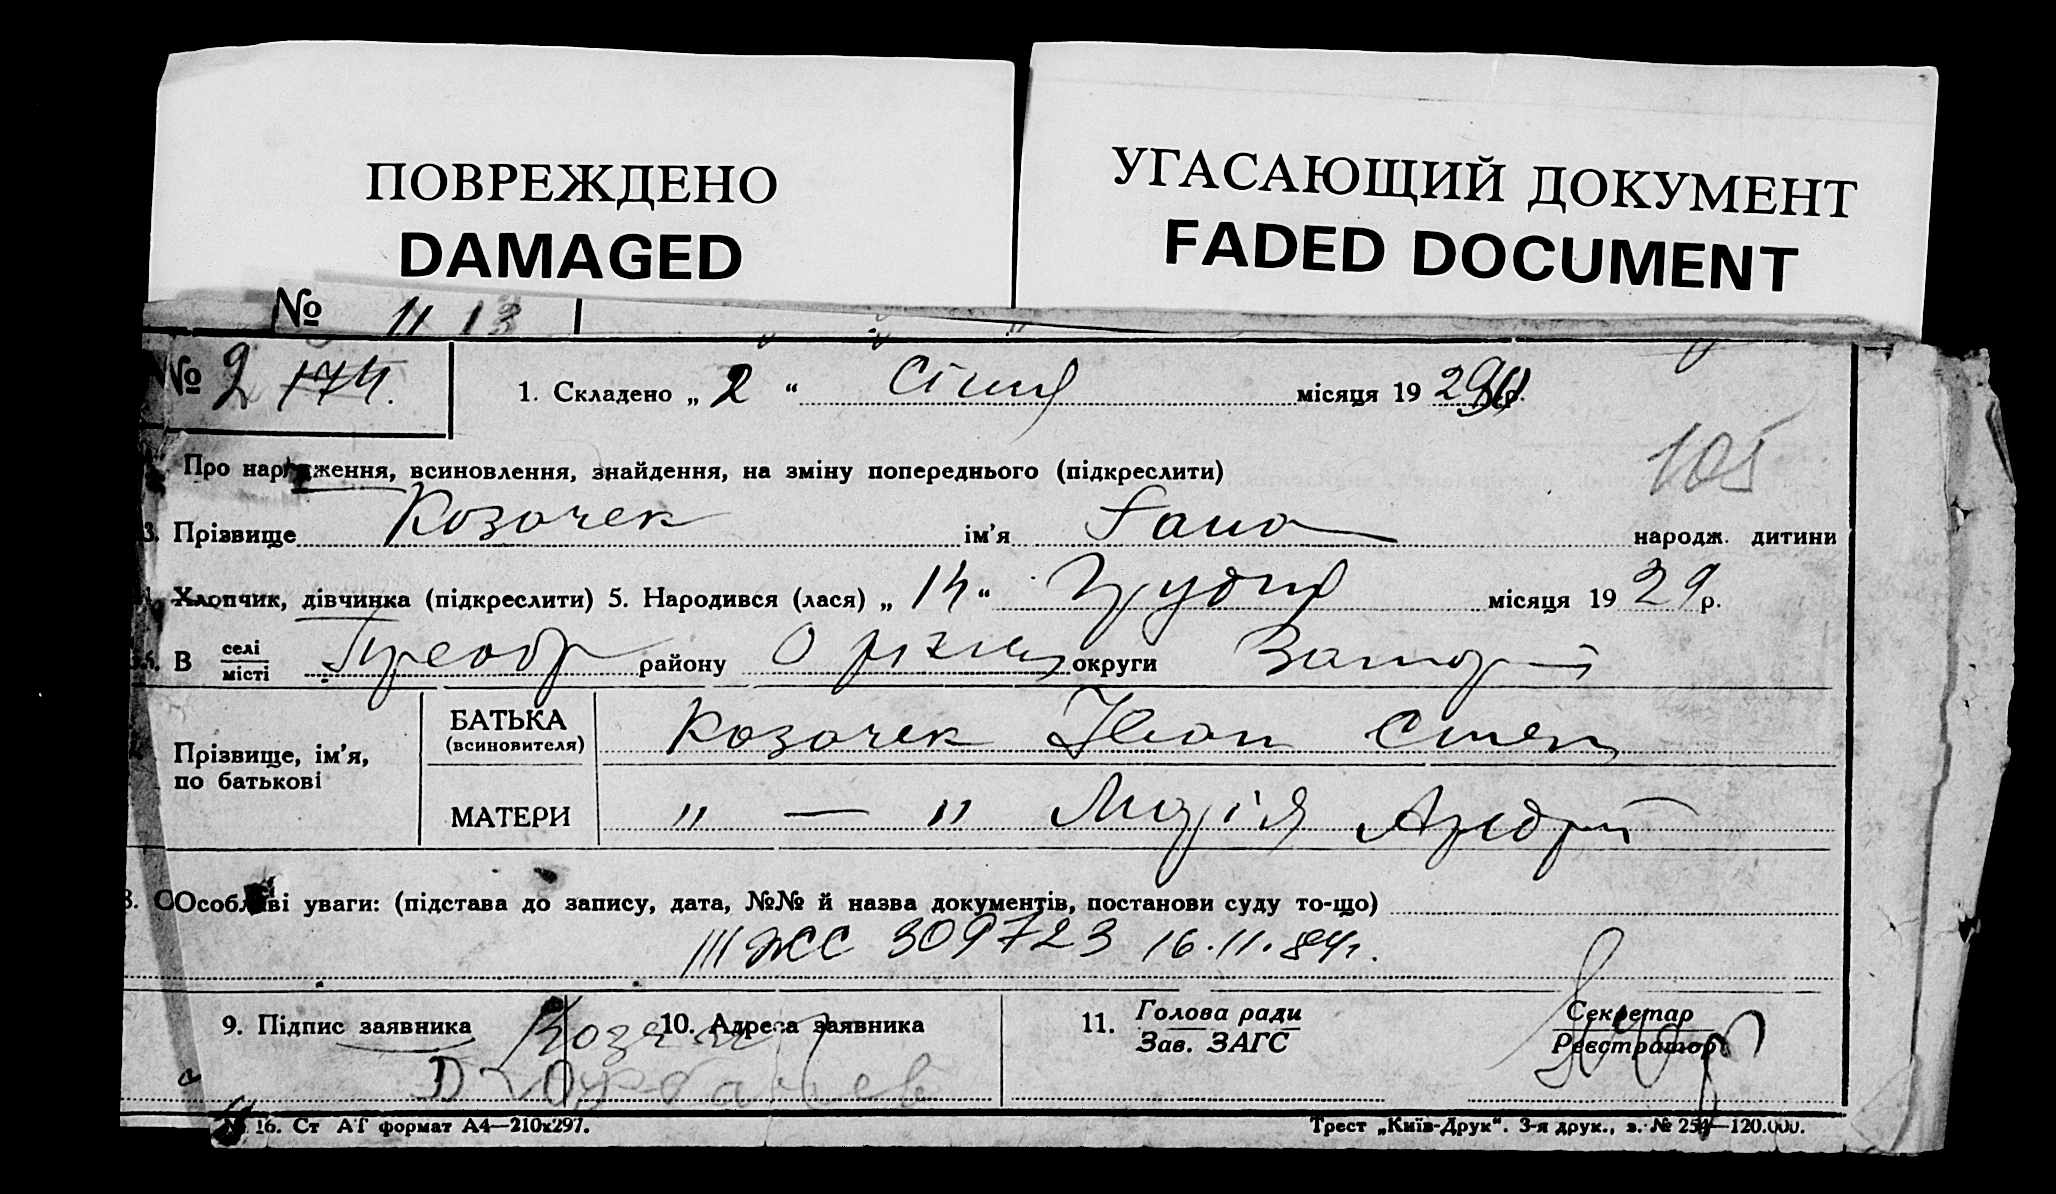 ПОВРЕЖДЕНО
DAMAGED
УГАСАЮЩИЙ ДОКУМЕНТ
FADED DOCUMENT
№ 11 13
№ 2 174.
1. Складено „ 2 “ Січня місяця 19 р.
105
Про народження, всиновлення, знайдення, на зміну попереднього (підкреслити)
3. Прізвище Козачек ім’я народж. дитини
Хлопчик, дівчинка (підкреслити) 5. Народився (лася) „ 14 “ Грудня місяця 19 29 р.
В селі місті Преобр району Оріхів округи Запоріз
Прізвище, ім’я, по батькові
БАТЬКА (всиновителя) Козачек Іван Степ
МАТЕРИ „ — „ Марія Андрії
8. Особливі уваги: (підстава до запису, дата, №№ й назва документів, постанови суду то-що)
III ЖС 309723 16.11.84г.
9. Підпис заявника Козачек
10. Адреса заявника
11. Голова ради
Зав. ЗАГС
Секретар
Реєстратор
№ 16. Ст АТ формат А4—210х297.
Трест „Київ-Друк“. 3-я друк., з. № 254—120.000.